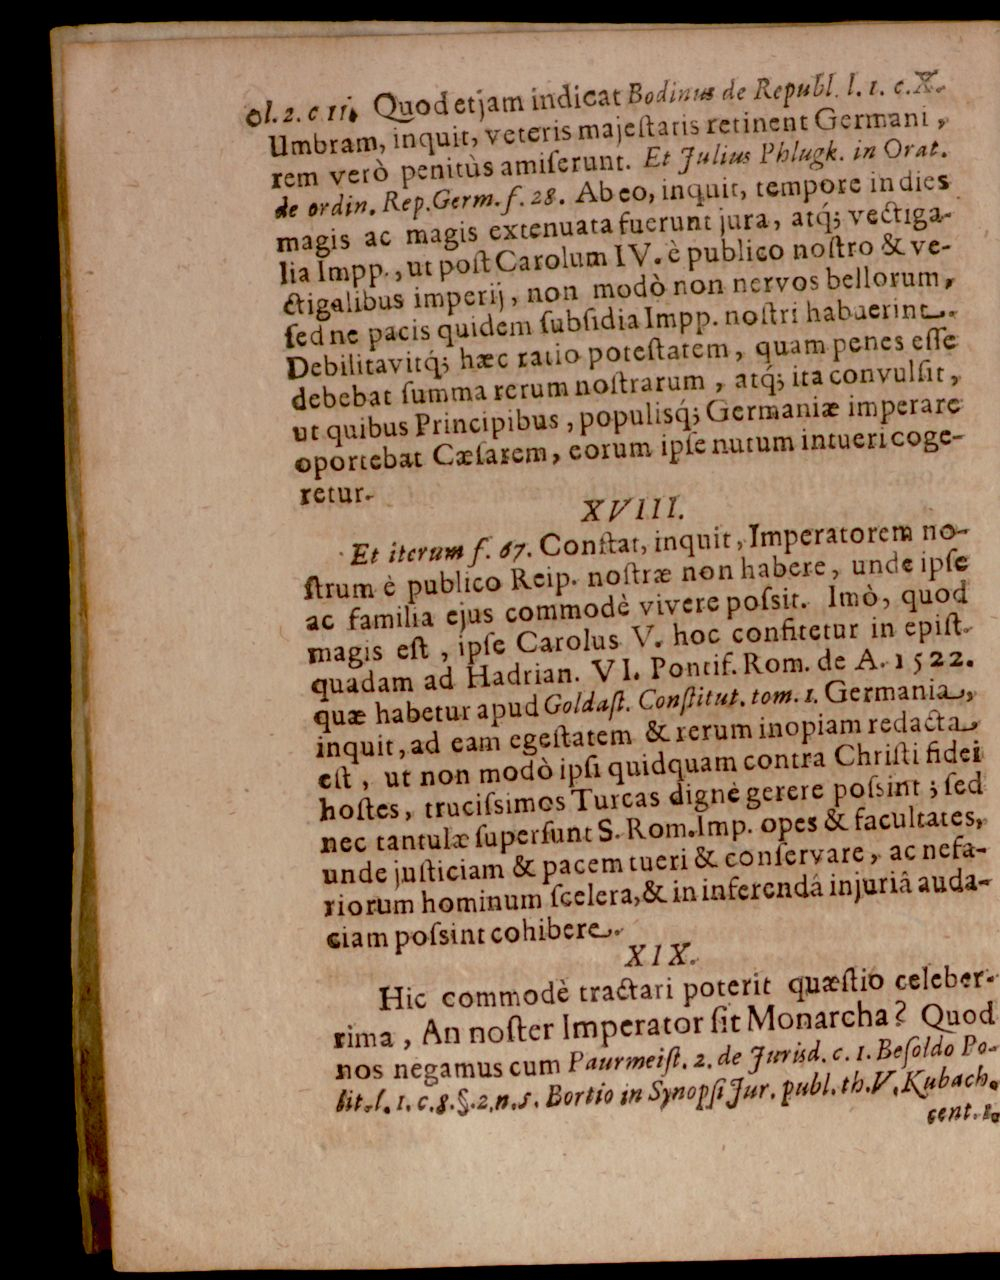 ol. 2. c 11. Quod etjam indicat Bodinus de Republ. l. 1. c. X.
Umbram, inquit, veteris majeſtatis retinent Germani,
rem verò penitùs amiſerunt. Et Julius Phlugk. in Orat.
de ordin. Rep. Germ. f. 28. Ab eo, inquit, tempore in dies
magis ac magis extenuata fuerunt jura, atq́; vectiga-
lia Impp., ut poſt Carolum IV. è publico noſtro & ve-
ctigalibus imperij, non modò non nervos bellorum,
ſed ne pacis quidem ſubſidia Impp. noſtri habuerint.
Debilitavitq́; hæc ratio poteſtatem, quam penes eſſe
debebat ſumma rerum noſtrarum, atq́; ita convulſit,
ut quibus Principibus, populisq́; Germaniæ imperare
oportebat Cæſarem, eorum ipſe nutum intueri coge-
retur.
XVIII.
Et iterum f. 67. Conſtat, inquit, Imperatorem no-
ſtrum è publico Reip. noſtræ non habere, unde ipſe
ac familia ejus commodè vivere poſsit. Imò, quod
magis eſt, ipſe Carolus V. hoc confitetur in epiſt.
quadam ad Hadrian. VI. Pontif. Rom. de A. 1522.
quæ habetur apud Goldaſt. Conſtitut. tom. 1. Germania,
inquit, ad eam egeſtatem & rerum inopiam redacta
eſt, ut non modò ipſi quidquam contra Chriſti fidei
hoſtes, truciſsimos Turcas dignè gerere poſsint; ſed
nec tantulæ ſuperſunt S. Rom. Imp. opes & facultates,
unde juſticiam & pacem tueri & conſervare, ac nefa-
riorum hominum ſcelera, & in inferendâ injuriâ auda-
ciam poſsint cohibere.
XIX.
Hic commodè tractari poterit quæſtio celeber-
rima, An noſter Imperator ſit Monarcha? Quod
nos negamus cum Paurmeiſt. 2. de Jurisd. c. 1. Beſoldo Po-
lit. l. 1. c. 8. §. 2. n. 5. Bortio in Synopſi Jur. publ. th. V. Kubach.
cent. 1.